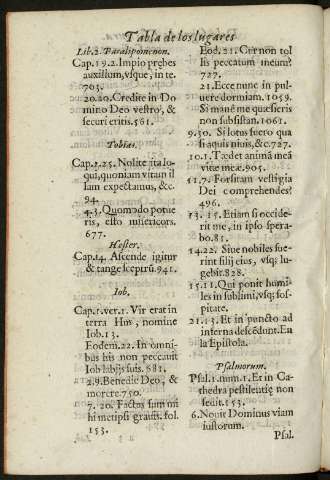 Tabla de los lugares
Lib.2. Paralipomenon.
Cap.19.2. Impio prębes
auxilium, vsque, in te.
703.
20.20. Credite in Do
mino Deo vestro, &
securi eritis. 561.
Tobias.
Cap.1.25. Nolite ita lo
qui, quoniam vitam il
lam expectamus, &c.
94.
4.3. Quomodo potue
ris, esto misericors.
677.
Hester.
Cap.14. Ascende igitur
& tange sceptrū. 941.
Iob.
Cap.1. ver.1. Vir erat in
terra Hus, nomine
Iob. 13.
Eodem. 22. In omni
bus his non peccauit
Iob labijs suis. 681.
2.9. Benedic Deo, &
morere. 750.
7. 20. Factus sum mi
hi metipsi grauis. fol.
153.
Eod. 21. Cur non tol
lis peccatum meum?
727.
21. Ecce nunc in pul-
uere dormiam. 1059.
Si mane me quæsieris
non subsistan. 1061.
9.30. Si lotus fuero qua
si aquis niuis, &c. 727.
10.1. Tædet animā meā
vitæ meæ. 905.
11.7. Forsitam vestigia
Dei comprehendes?
496.
13. 15. Etiam si occide
rit me, in ipso spera-
bo. 81.
14.22. Siue nobiles fue-
rint filij eius, vsq; lu-
gebit. 828.
15.11. Qui ponit humi-
les in sublimi, vsq; sos-
pitate.
21.13. Et in puncto ad
inferna descēdunt. En
la Epistola.
Psalmorum.
Psal.1. num.1. Et in Ca-
thedra pestilentię non
sedit. 153.
6. Nouit Dominus viam
iustorum.
Psal.